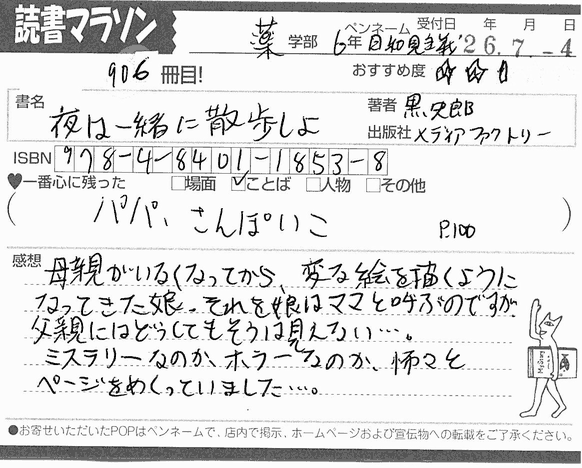 読書マラソン
ペンネーム 受付日 年 月 日
薬 学部 6年 自知見主義 '26.7-4
906冊目!
おすすめ度
書名
夜は一緒に散歩しよ
著者 黒史郎
出版社 メディアファクトリー
ISBN 978-4-8401-1853-8
♥一番心に残った □場面 ☑ことば □人物 □その他
(パパ、さんぽいこ P.100)
感想
母親がいなくなってから、変な絵を描くように
なってきた娘。それを娘はママと呼ぶのですが、
父親にはどうしてもそうは見えない…。
ミステリーなのか、ホラーなのか、怖々と
ページをめくっていました…。
●お寄せいただいたPOPはペンネームで、店内で掲示、ホームページおよび宣伝物への転載をご了承ください。